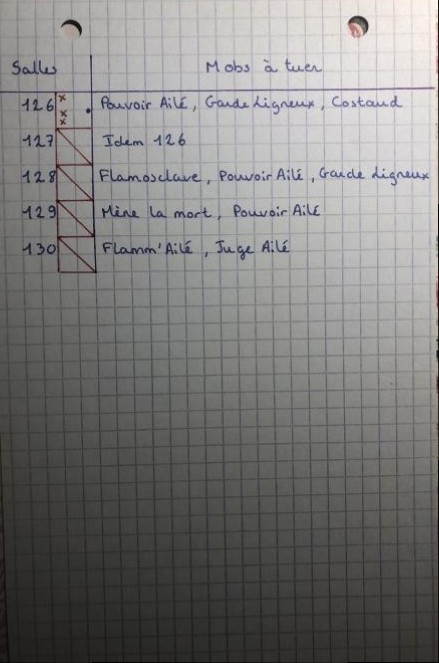 Salles Mobs à tuer
126 x x x . Pouvoir Ailé, Garde Ligneux, Costaud
127 Idem 126
128 Flamosclave, Pouvoir Ailé, Garde Ligneux
129 Mène la mort, Pouvoir Ailé
130 Flamm'Ailé, Juge Ailé